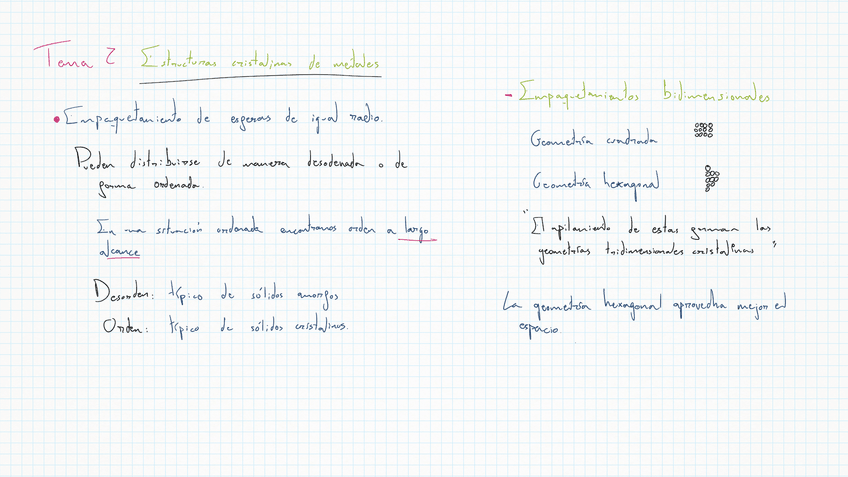 Tema 2 Estructuras cristalinas de metales
• Empaquetamiento de esferas de igual radio.
Pueden distribuirse de manera desodenada o de
forma ordenada.
En una situación ordenada encontramos orden a largo
alcance
Desorden: típico de sólidos amorfos
Orden: típico de sólidos cristalinos.
- Empaquetamientos bidimensionales
Geometría cuadrada
Geometría hexagonal
" El apilamiento de estas forman las
geometrías tridimensionales cristalinas "
La geometría hexagonal aprovecha mejor el
espacio.